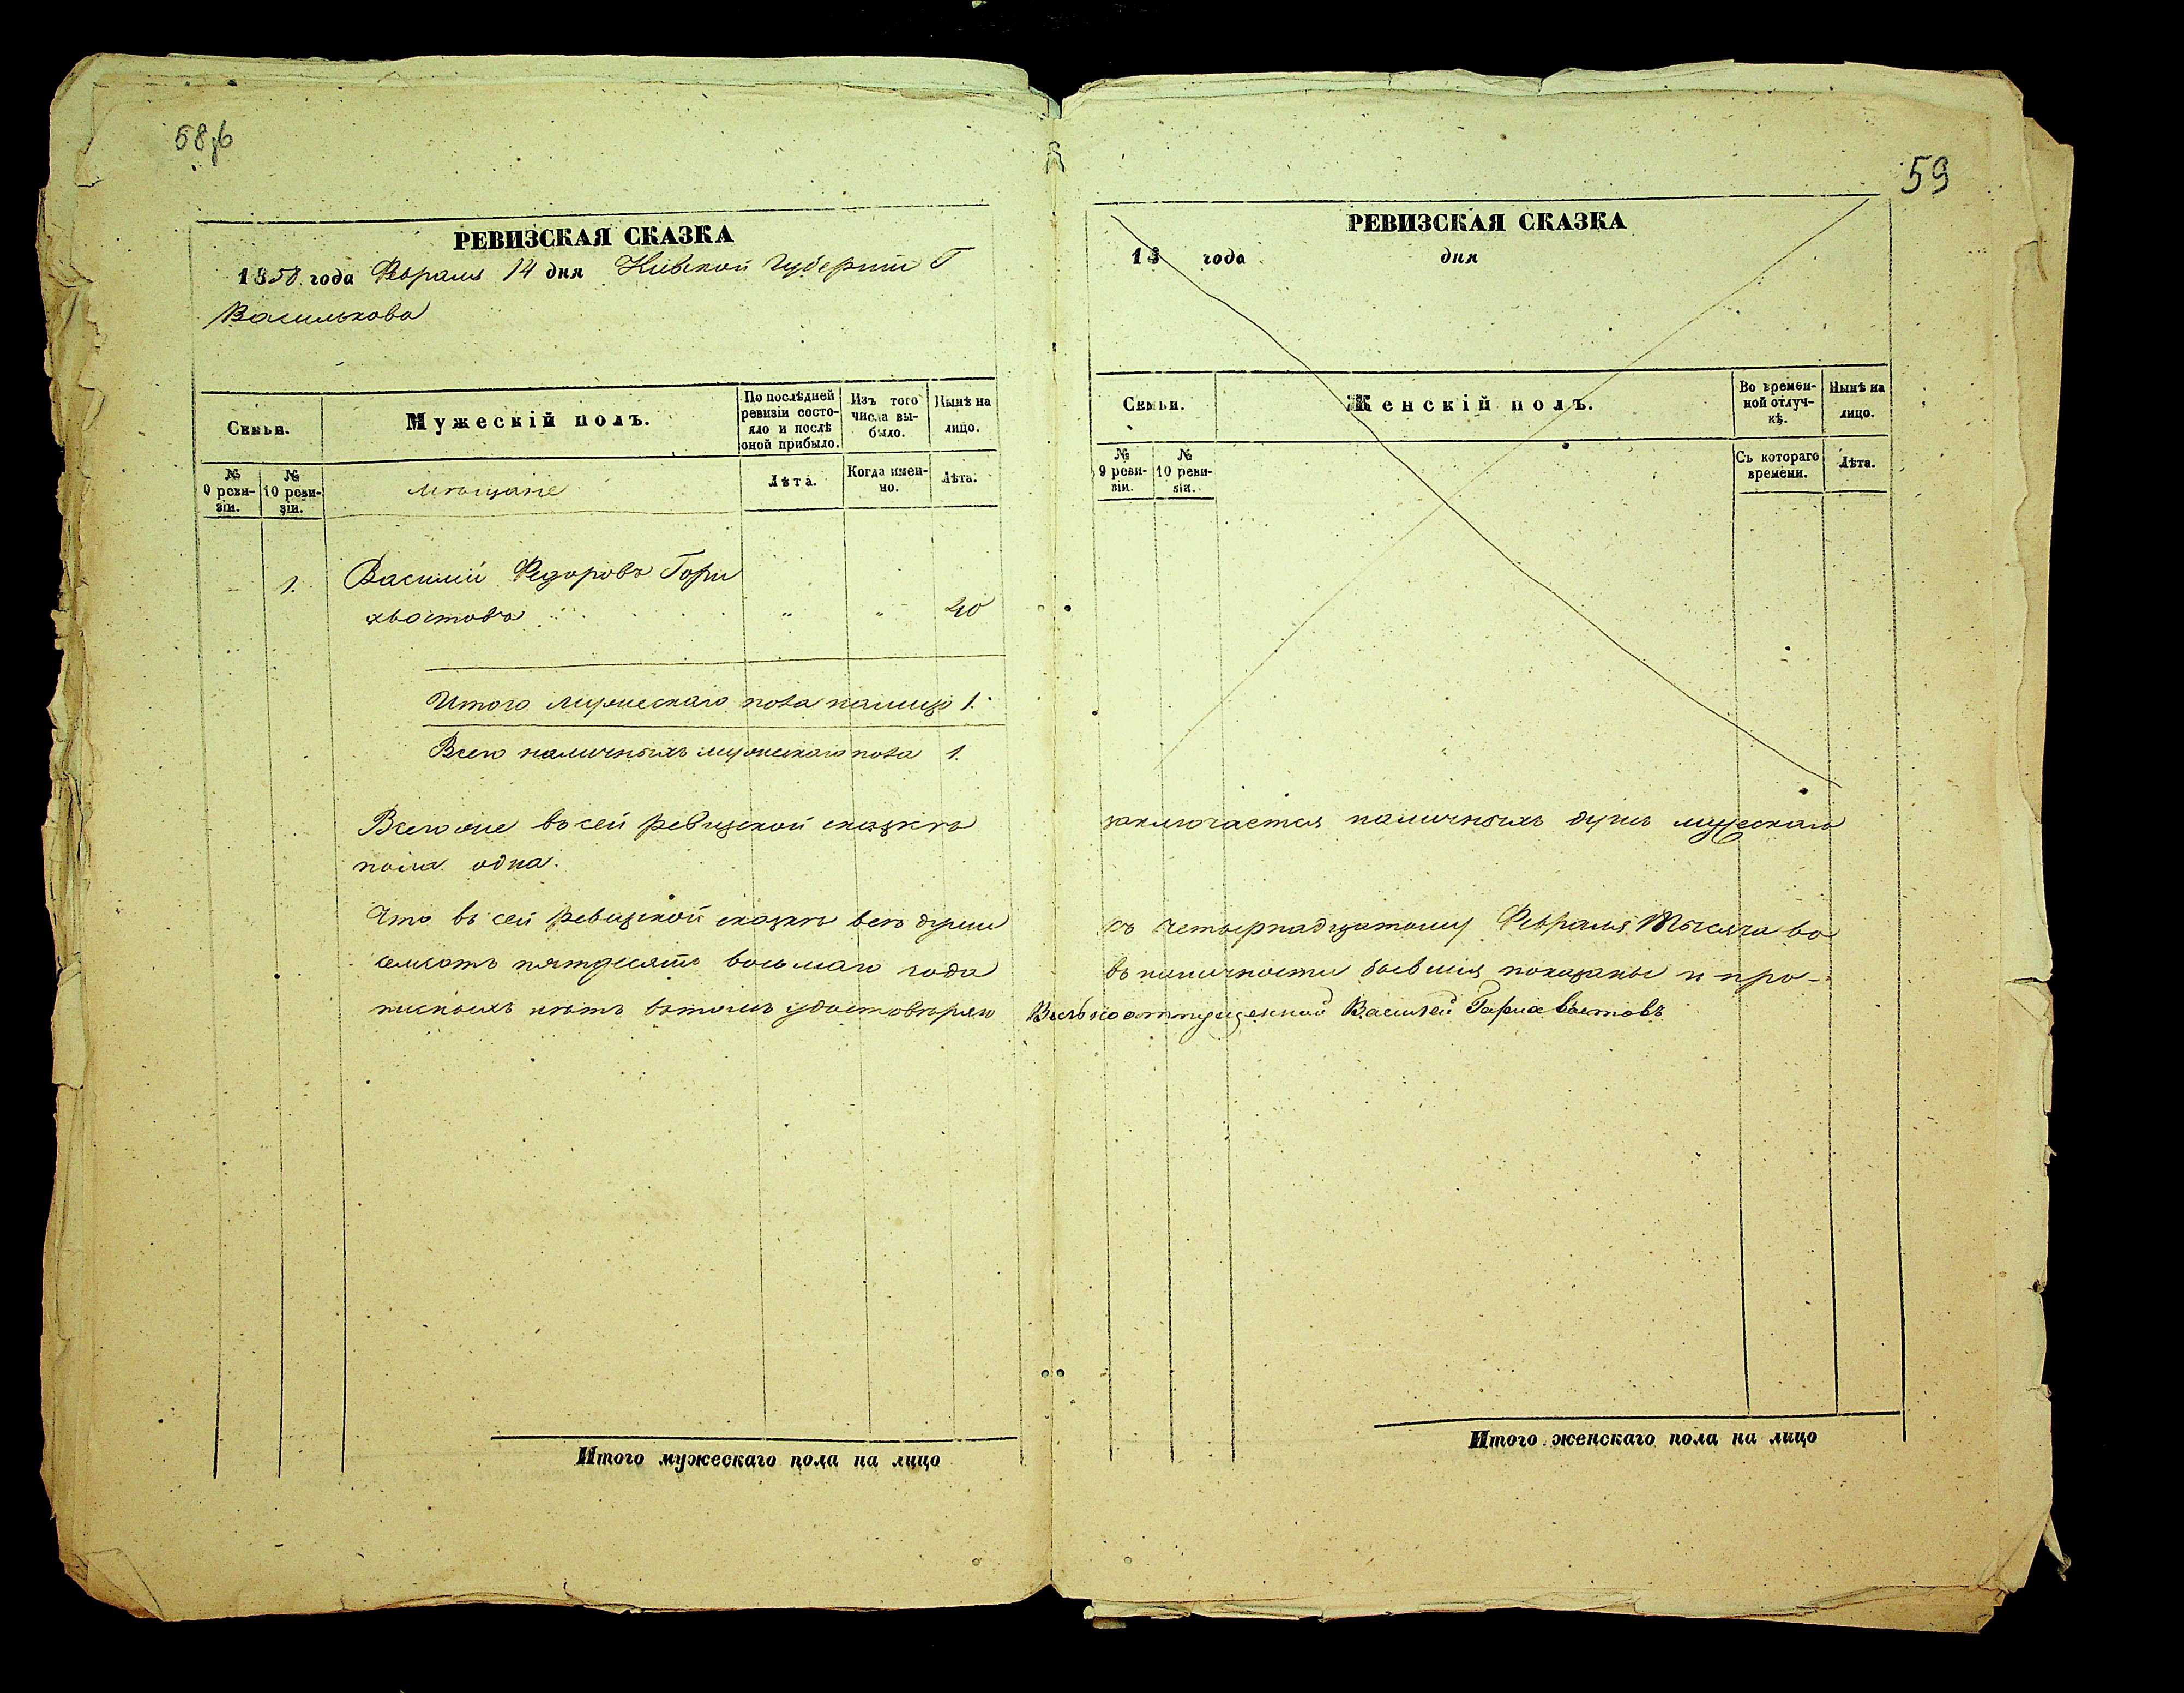 58об
РЕВИЗСКАЯ СКАЗКА
1858 года Февраля 14 дня Кіевской Губерніи Г
Василькова
Семьи.
Мужескій полъ.
По послѣдней ревизіи состояло и послѣ оной прибыло.
Изъ того числа выбыло.
Нынѣ на лицо.
№ 9 ревизіи.
№ 10 ревизіи.
мѣщане
Лѣта.
Когда именно.
Лѣта.
1. Василий Федоровъ Гори
хвостовъ " " 40
Итого мужескаго пола налицо 1.
Всего наличныхъ мужескаго пола 1.
59
РЕВИЗСКАЯ СКАЗКА
18 года дня
Семьи.
Женскій полъ.
Во временной отлучкѣ.
Нынѣ на лицо.
№ 9 ревизіи.
№ 10 ревизіи.
Съ котораго времени.
Лѣта.
Всего же въ сей ревизской сказкѣ заключается наличныхъ душъ мужескаго
пола одна.
Что въ сей ревизской сказкѣ всѣ души къ четырнадцатому Февраля тысяча во
семсотъ пятдесятъ восьмаго года въ наличности бывшія показаны и про-
писныхъ нѣтъ вътомъ удостовѣряю Вольноотпущенной Василей Гарихвостовъ
Итого мужескаго пола на лицо
Итого женскаго пола на лицо